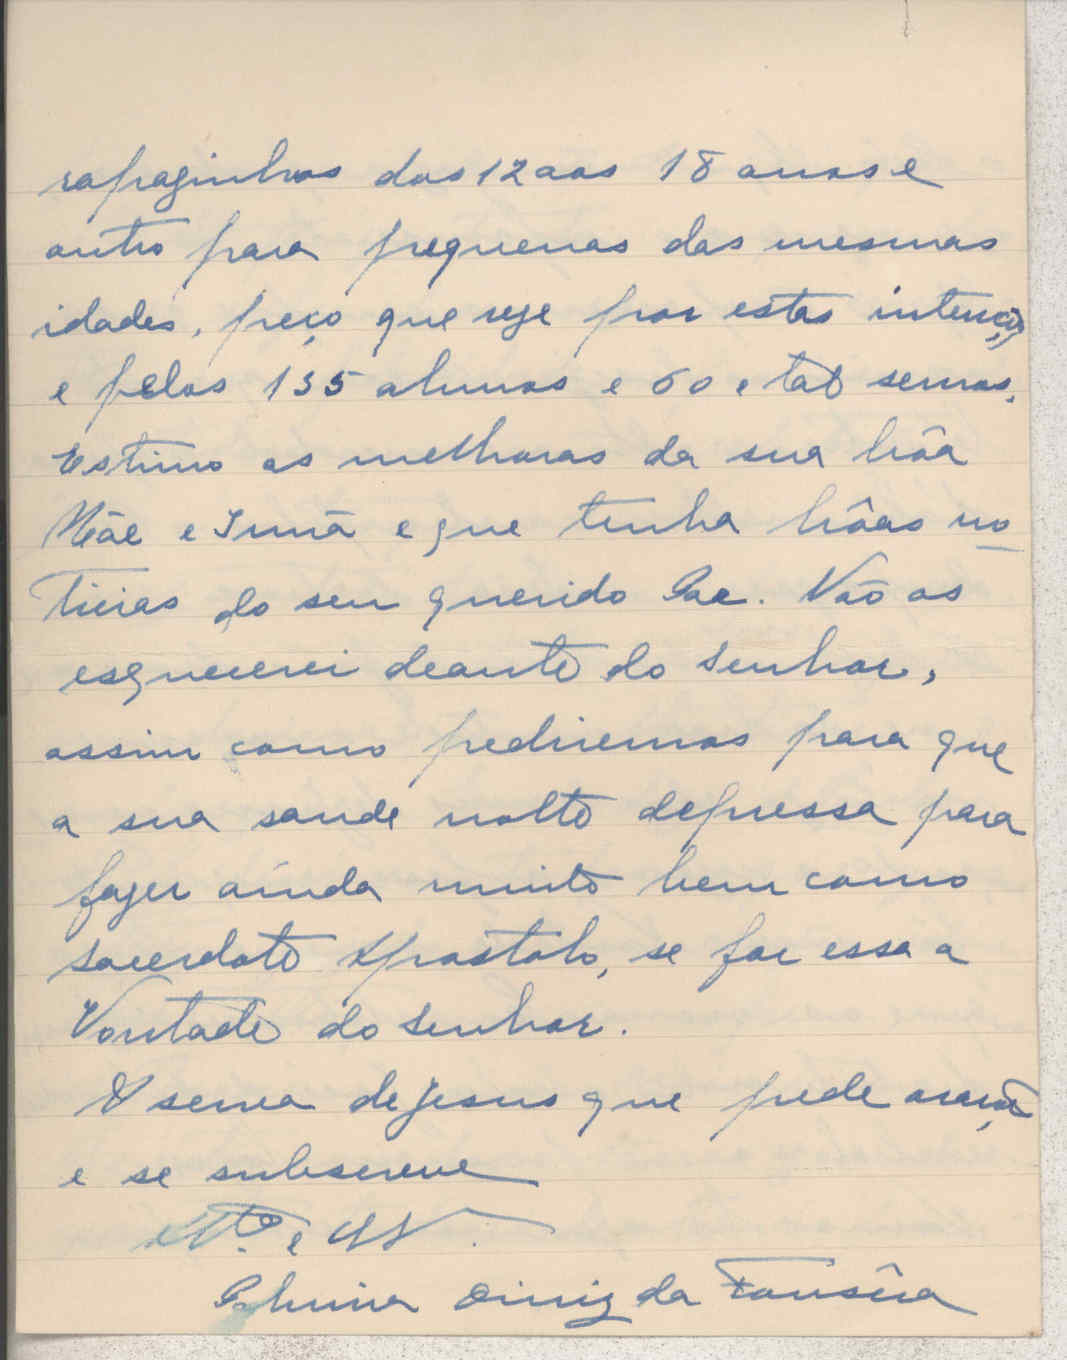 rapaginhos dos 12 aos 18 anos e
outro para pequenas das mesmas
idades, peço que reze por estas intenções
e pelos 135 alunos e 60 e tal servas.
Estimo as melhoras da sua bôa
Mãe e Irmã e que tenha bôas no
ticias do seu querido Pae. Não os
esquecerei deante do Senhor,
assim como pediremos para que
a sua saude volte depressa para
fazer ainda muito bem como
sacerdote Apostolo, se fôr essa a
Vontade do Senhor.
A serva de Jesus que pede oração
e se subscreve
Diniz da Fonsêca